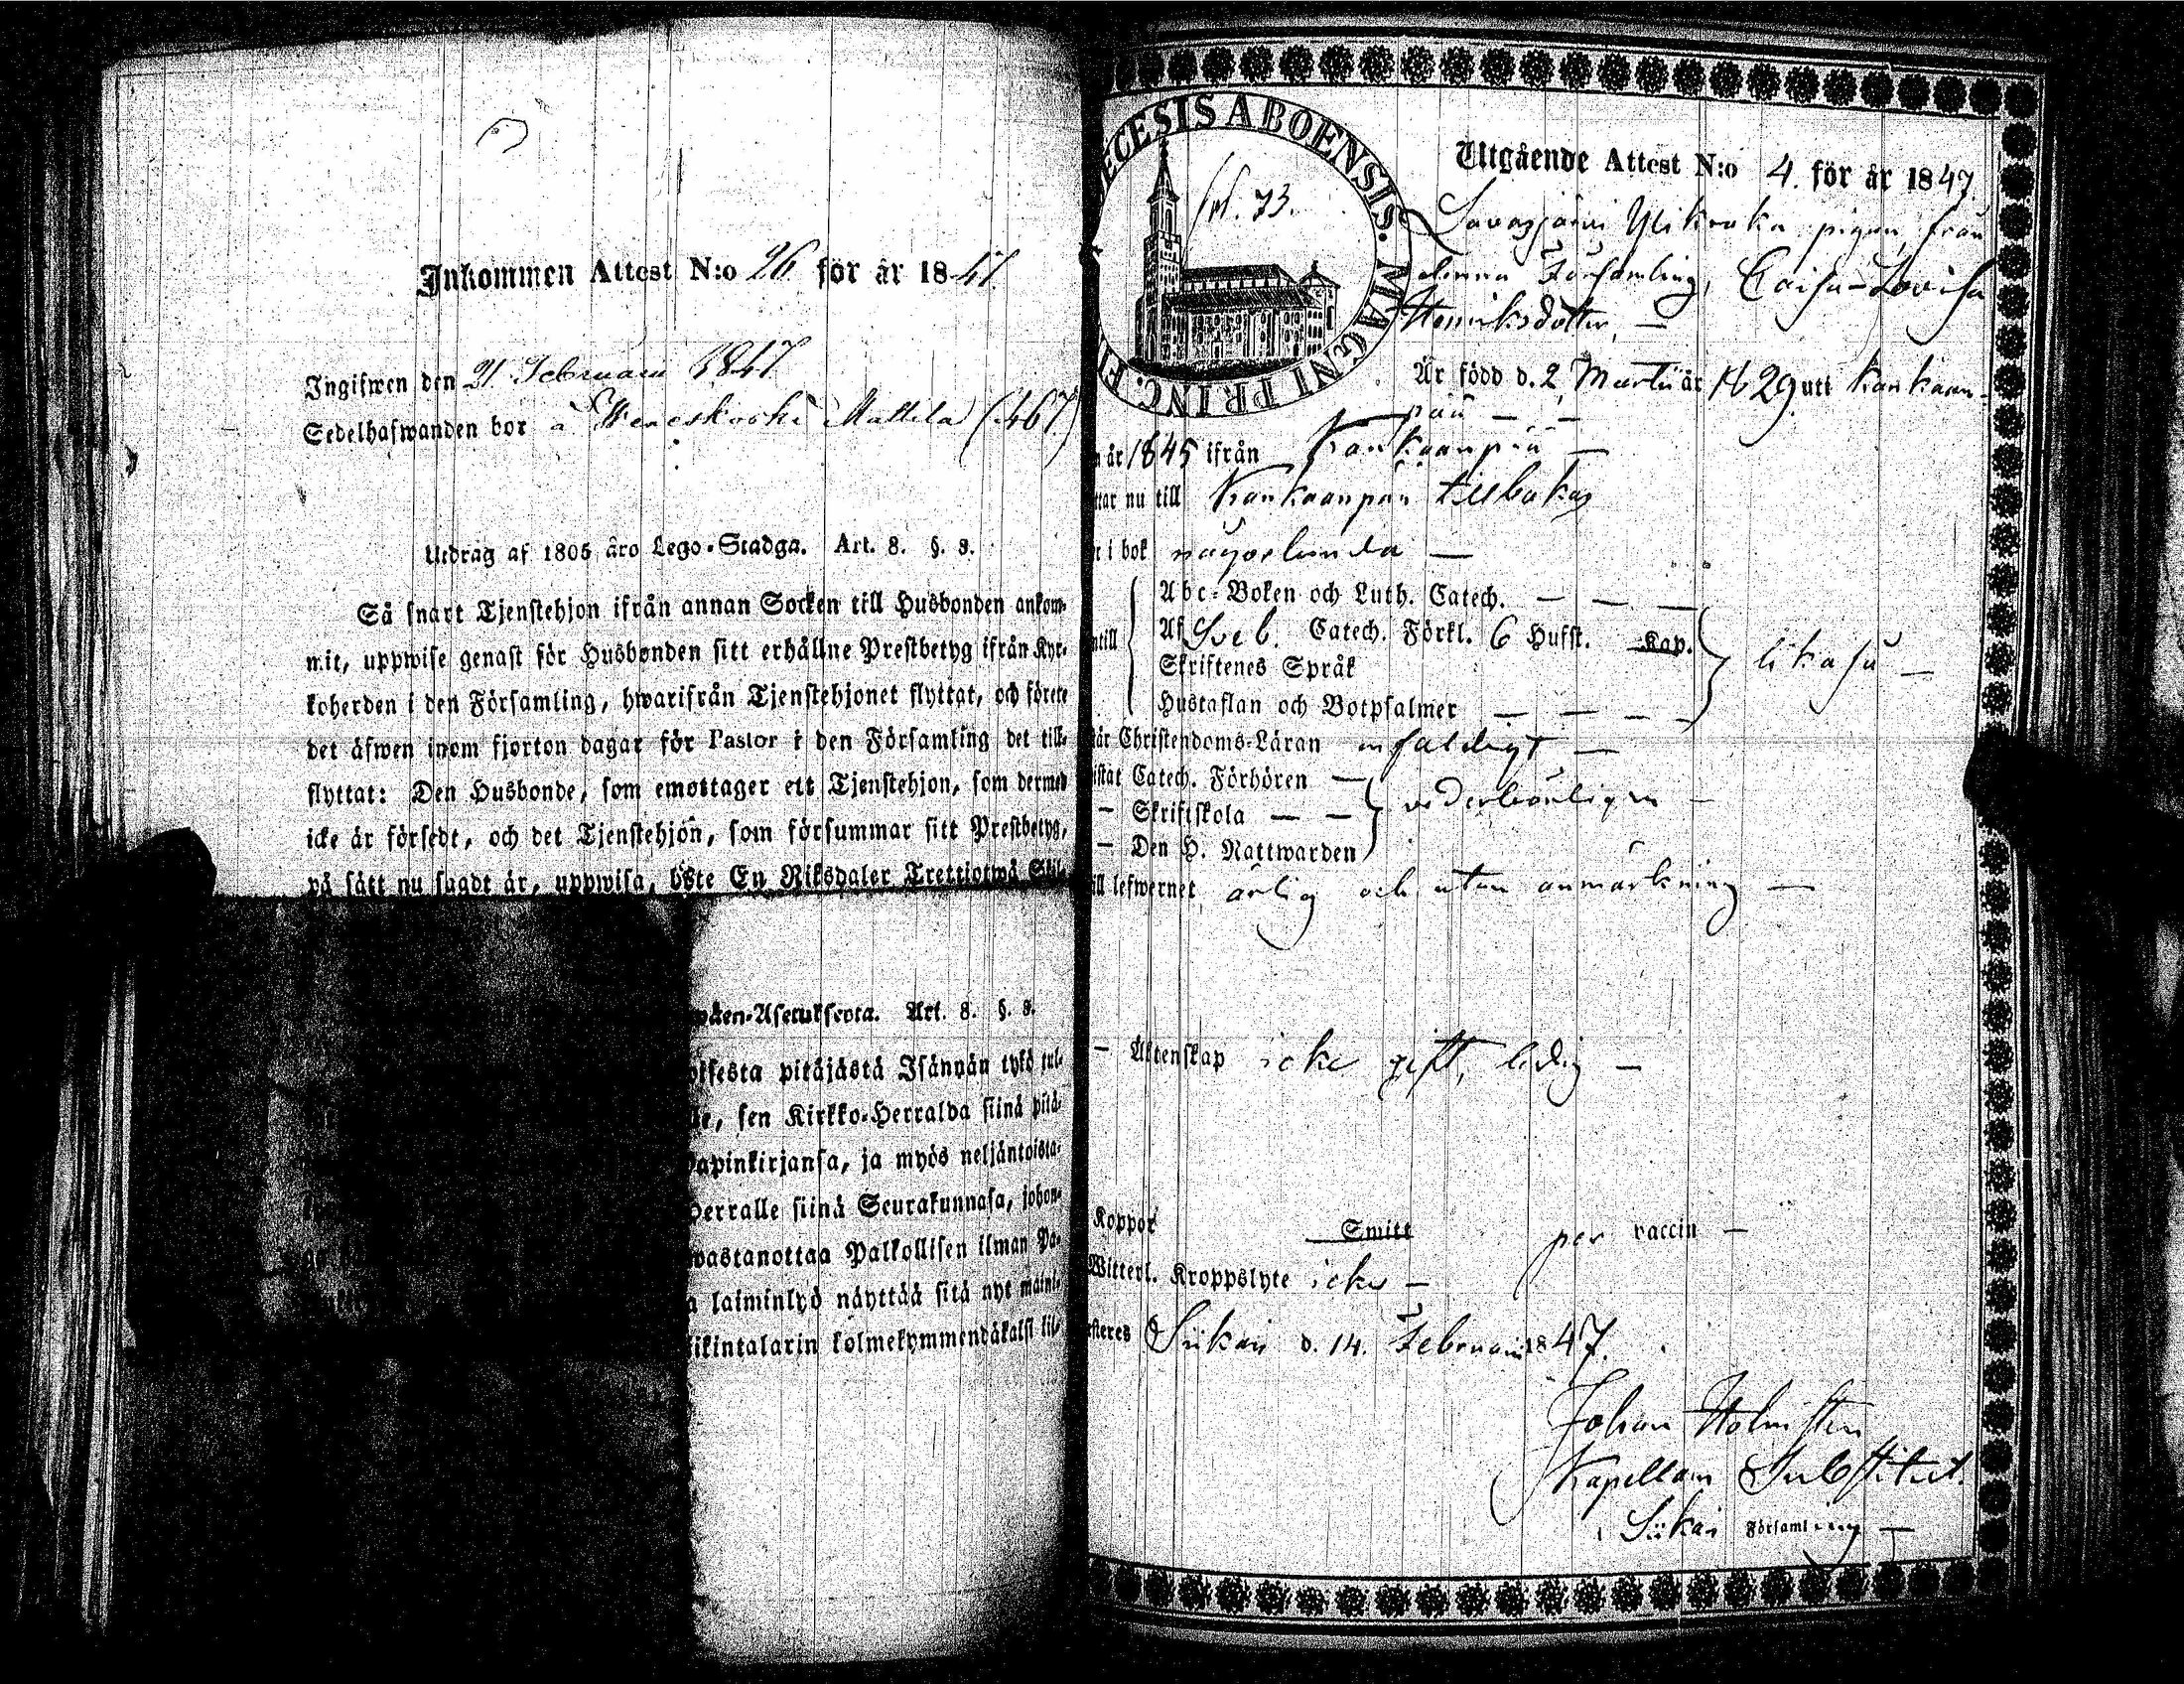 Inkommen Attest N:o 26 för år 1847.
Ingifwen den 21 Februarii 1847
Sedelhafwanden bor å Weneskoski Mattila (467.)
Utdrag af 1805 åro Lego-Stadga. Art. 8. §. 3.
Så snart Tjenstehjon ifrån annan Socken till Husbonden ankom-
mit, uppwise genast för Husbonden sitt erhållne Prestbetyg ifrån Kyr-
koherden i den Församling, hwarifrån Tjenstehjonet flyttat, och förete
det äfwen inom fjorton dagar för Pastor i den Församling det till-
flyttat: Den Husbonde, som emottager ett Tjenstehjon, som dermed
icke är försedt, och det Tjenstehjon, som försummar sitt Prestbetyg,
på sätt nu sagdt är, uppwisa, böte En Riksdaler Trettiotwå Skil-
wäen-Asetuksesta. Art. 8. §. 3.
oisesta pitäjästä Isännän tykö tul-
le, sen Kirkko-Herralda siinä pitä-
apinkirjansa, ja myös neljäntoista-
Herralle siinä Seurakunnasa, johon-
wastanottaa Palkollisen ilman Pa-
a laiminlyö näyttää sitä nyt maini-
iikintalarin kolmekymmendäkaksi kil-
ECESIS ABOENSIS. MAGNI PRINC. FI
fol. 73.
Utgående Attest N:o 4. för år 1847
Savasjärvi Ylikraka pigan, från
denna Församling, Caisa-Lovisa
Henriksdotter, —
Är född d. 2 Martii år 1829 uti Kankaan-
pää — —
år 1845 ifrån Kankaanpää —
ttar nu till Kankaanpää tillbakas
r i bok någorlunda —
Abc-Boken och Luth. Catech. — — —
ntill Af Sveb. Catech. Förkl. 6 Hufst. Kap. likaså —
Skriftenes Språk
Hustaflan och Botpsalmer — — — —
tår Christendoms-Läran enfaldigt —
istat Catech. Förhören —
— Skriftskola — — vederbörligen —
— Den H. Nattwarden
ill lefwernet ärlig och utan anmärkning —
— Äktenskap icke gift, ledig —
Koppor Smitt per vaccin —
Witterl. Kroppslyte icke —
steres Siikais d. 14. Februarii 1847.
Johan Holmsten
Kapellans Substitut.
i Siikais Församling —